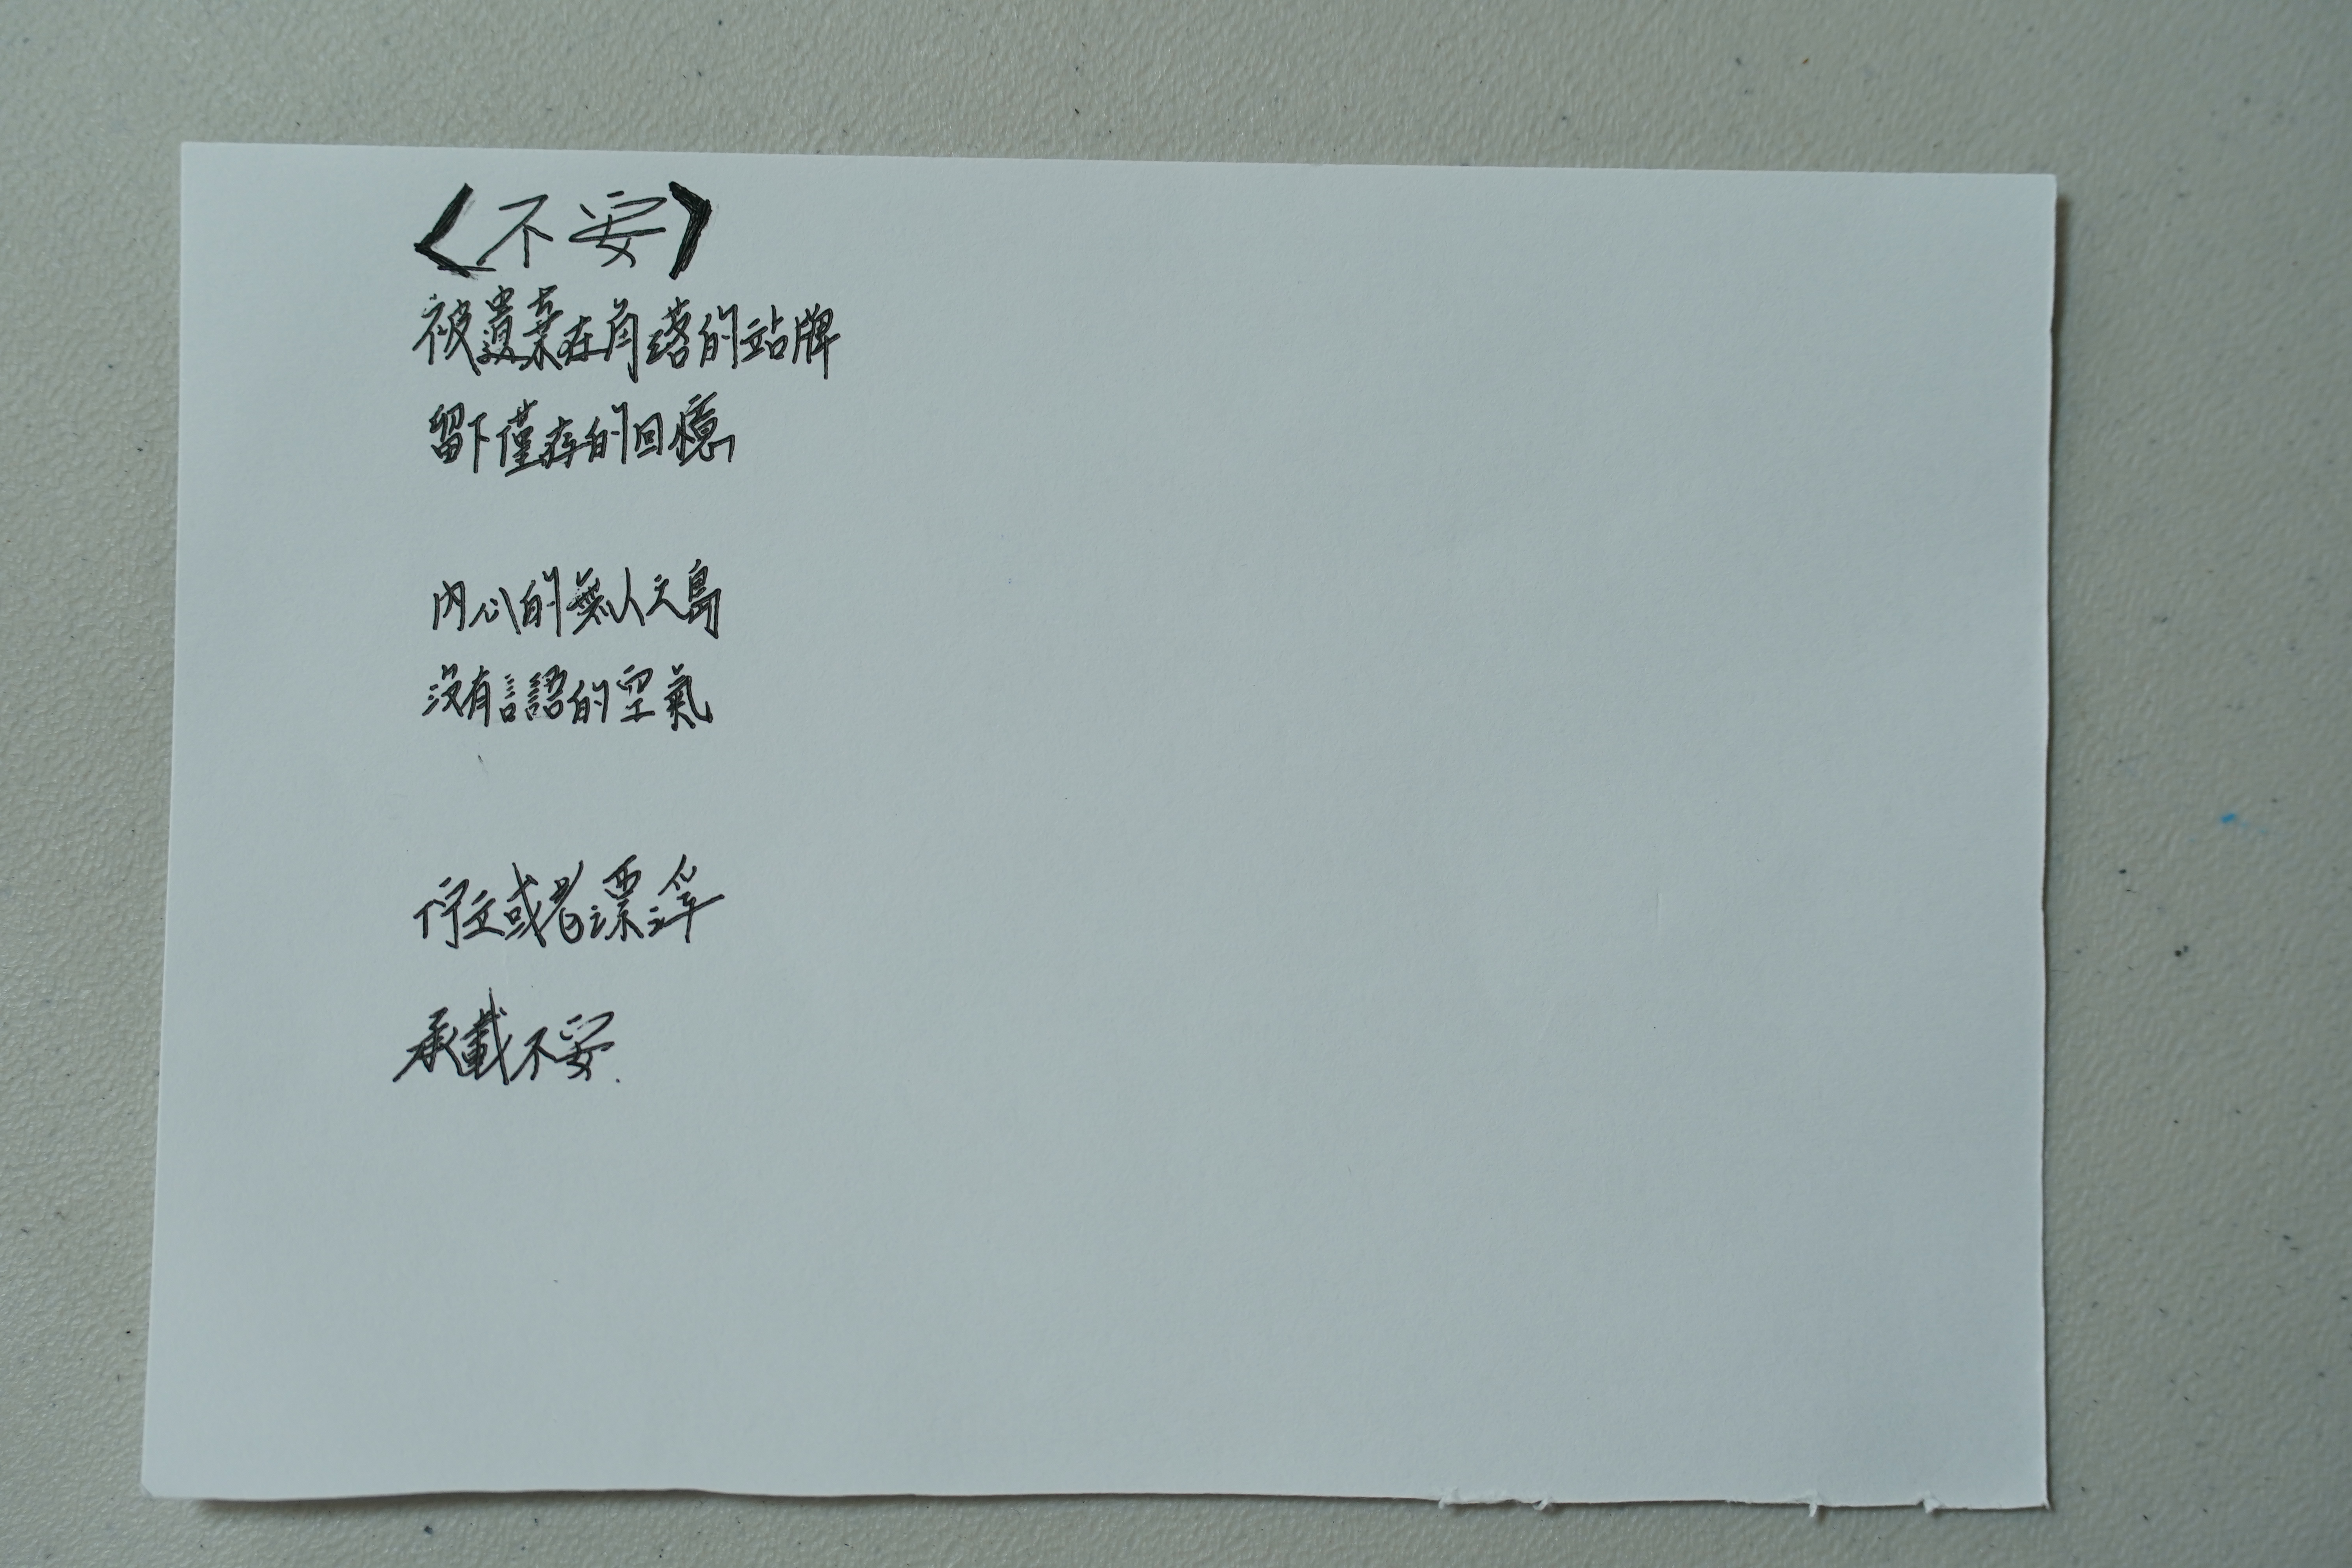 〈不安〉
被遺棄在角落的站牌
留下僅存的回憶
內心的無人之島
沒有言語的空氣
佇立或者漂浮
承載不安.